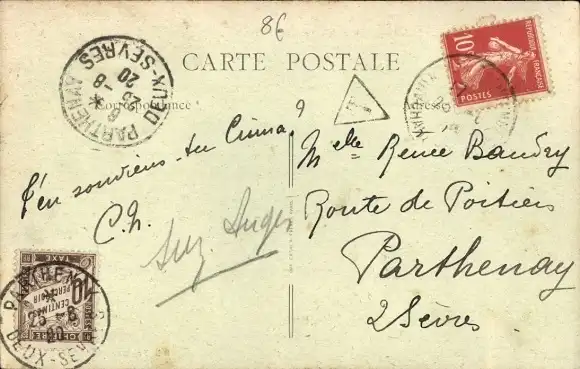 86
CARTE POSTALE
Correspondance
Adresse
PARTHENAY
DEUX-SÈVRES
25 -8
20
T
10
POSTES
RÉPUBLIQUE FRANÇAISE
T'en souviens-tu Cinna?
Ch.
Suz. Auger
Melle Renée Baudry
Route de Poitiers
Parthenay
2 Sèvres
PARTHENAY
25 -8
20
DEUX-SÈVRES
10
CENTIMES
À PERCEVOIR
TAXE